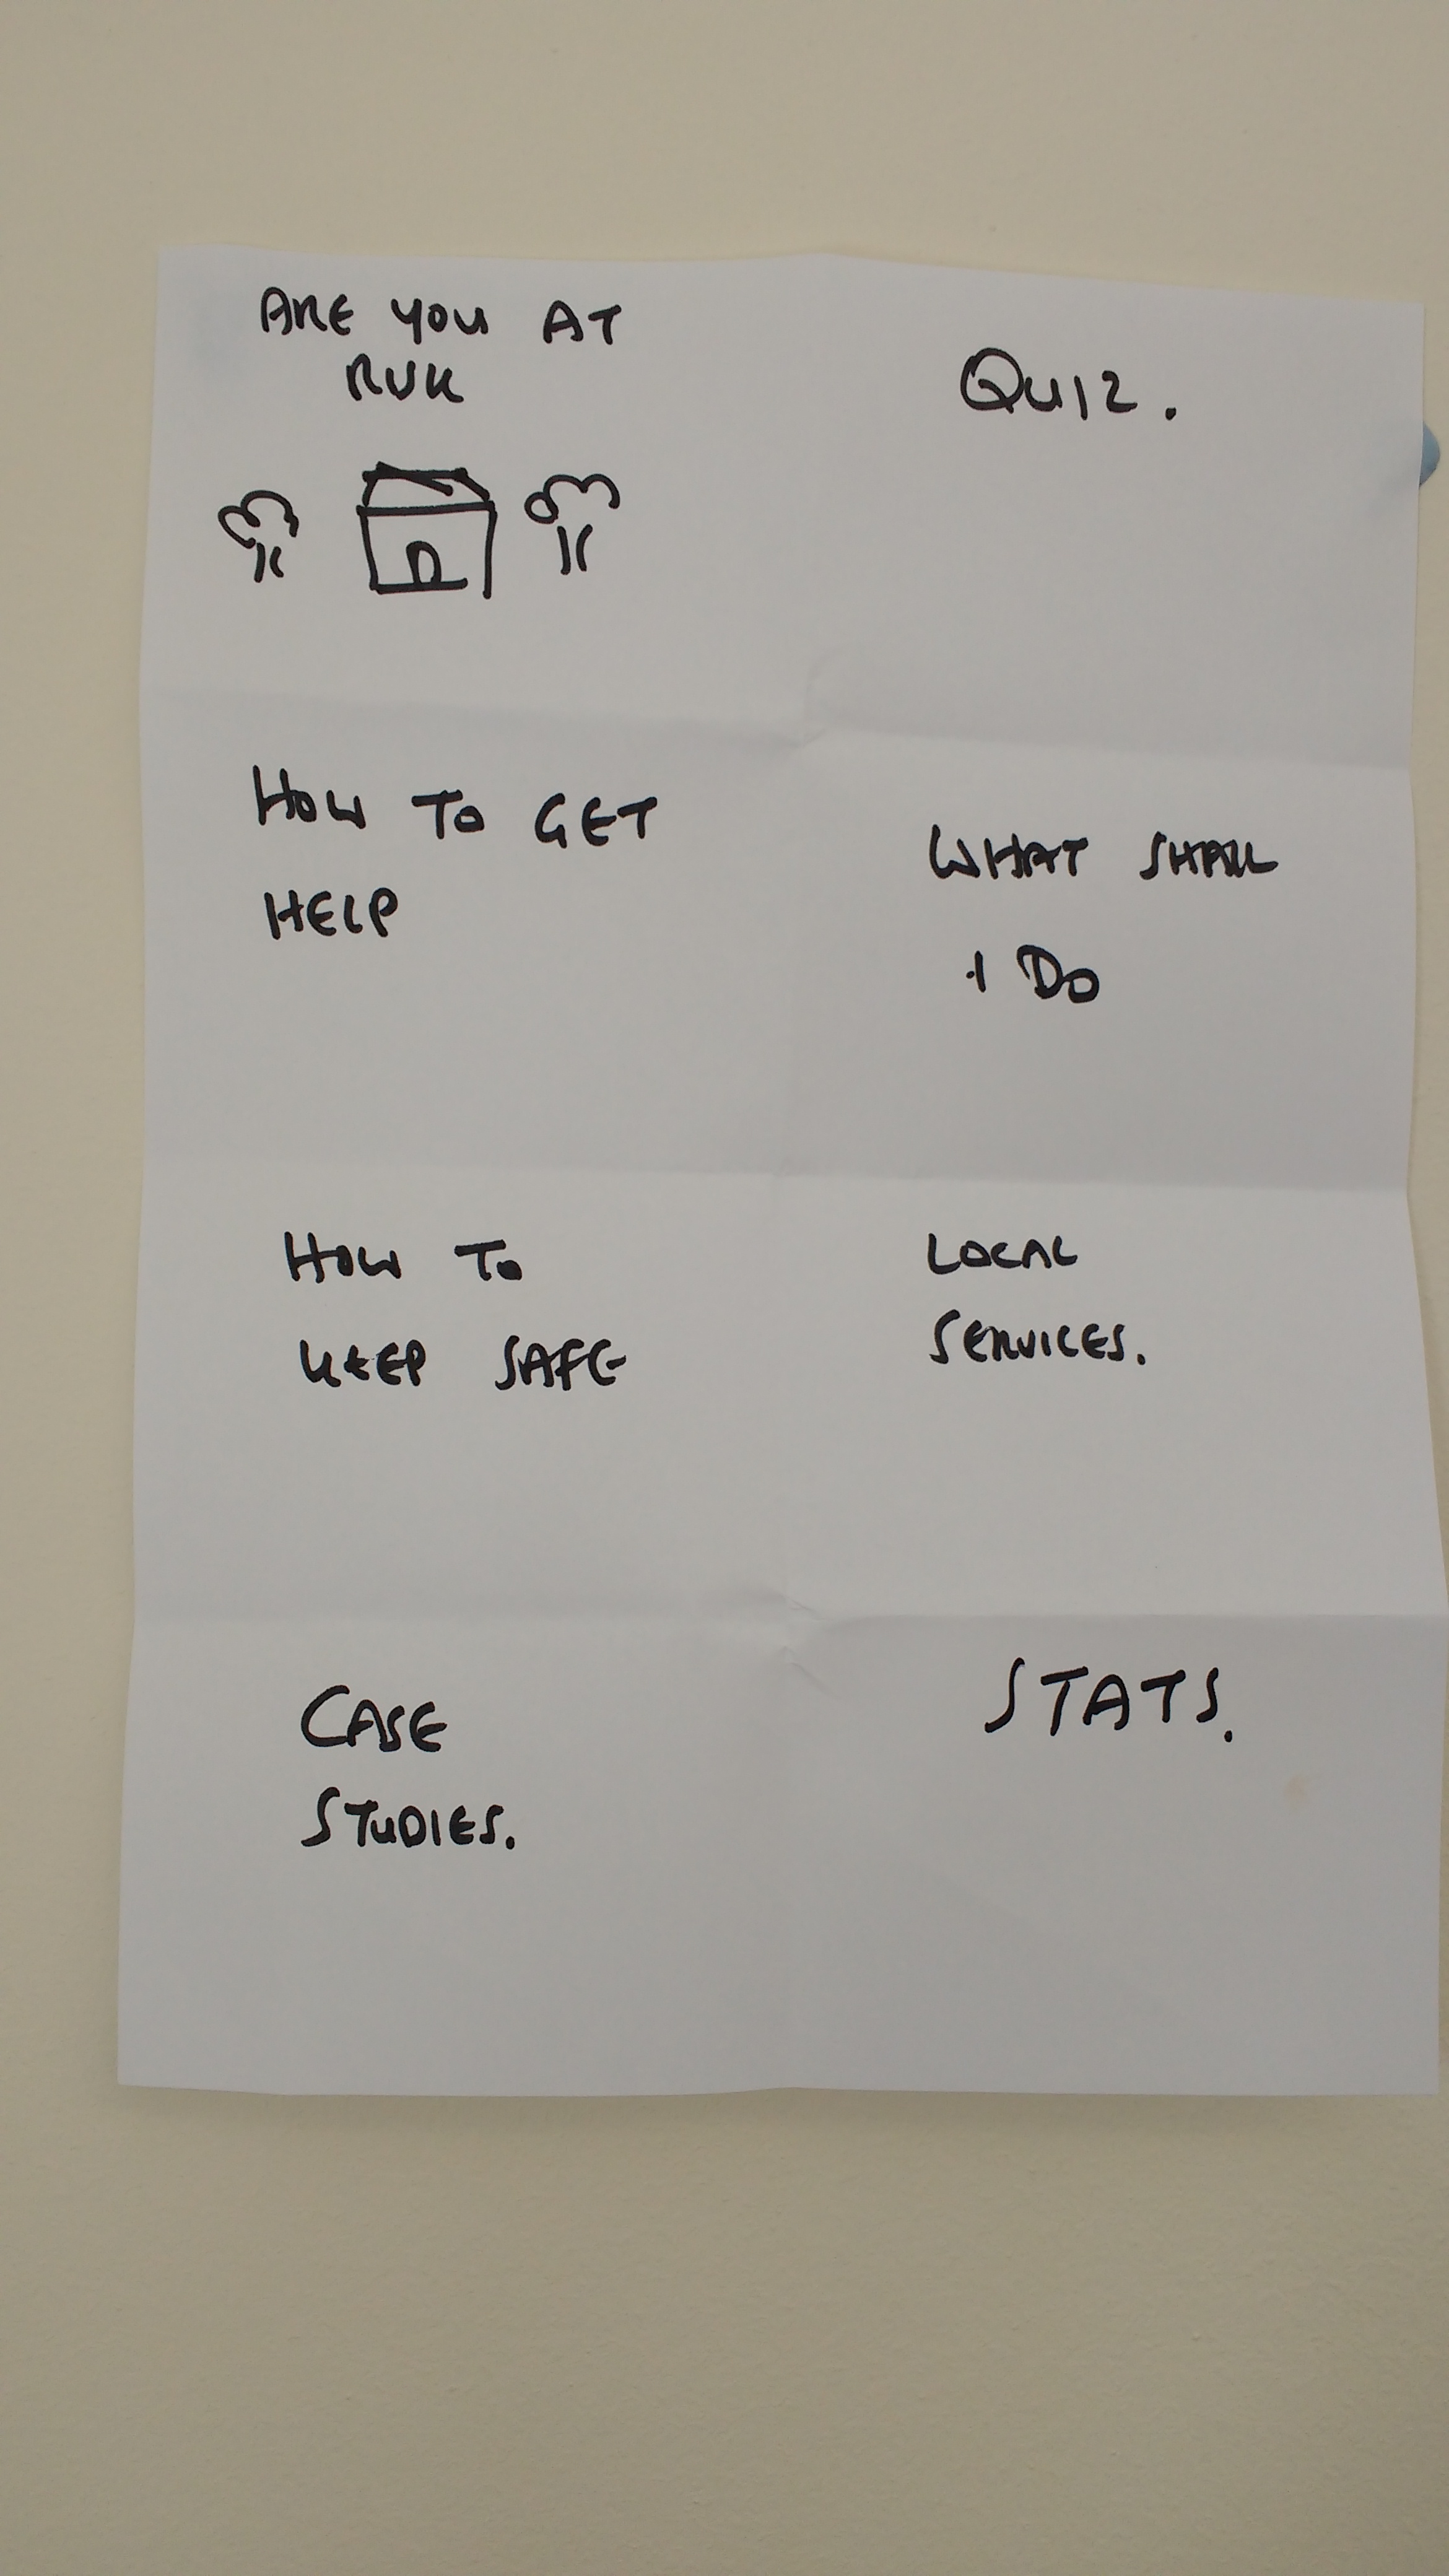 ARE YOU AT
RISK
QUIZ.
HOW TO GET
HELP
WHAT SHALL
I DO
HOW TO
KEEP SAFE
LOCAL
SERVICES.
CASE
STUDIES.
STATS.